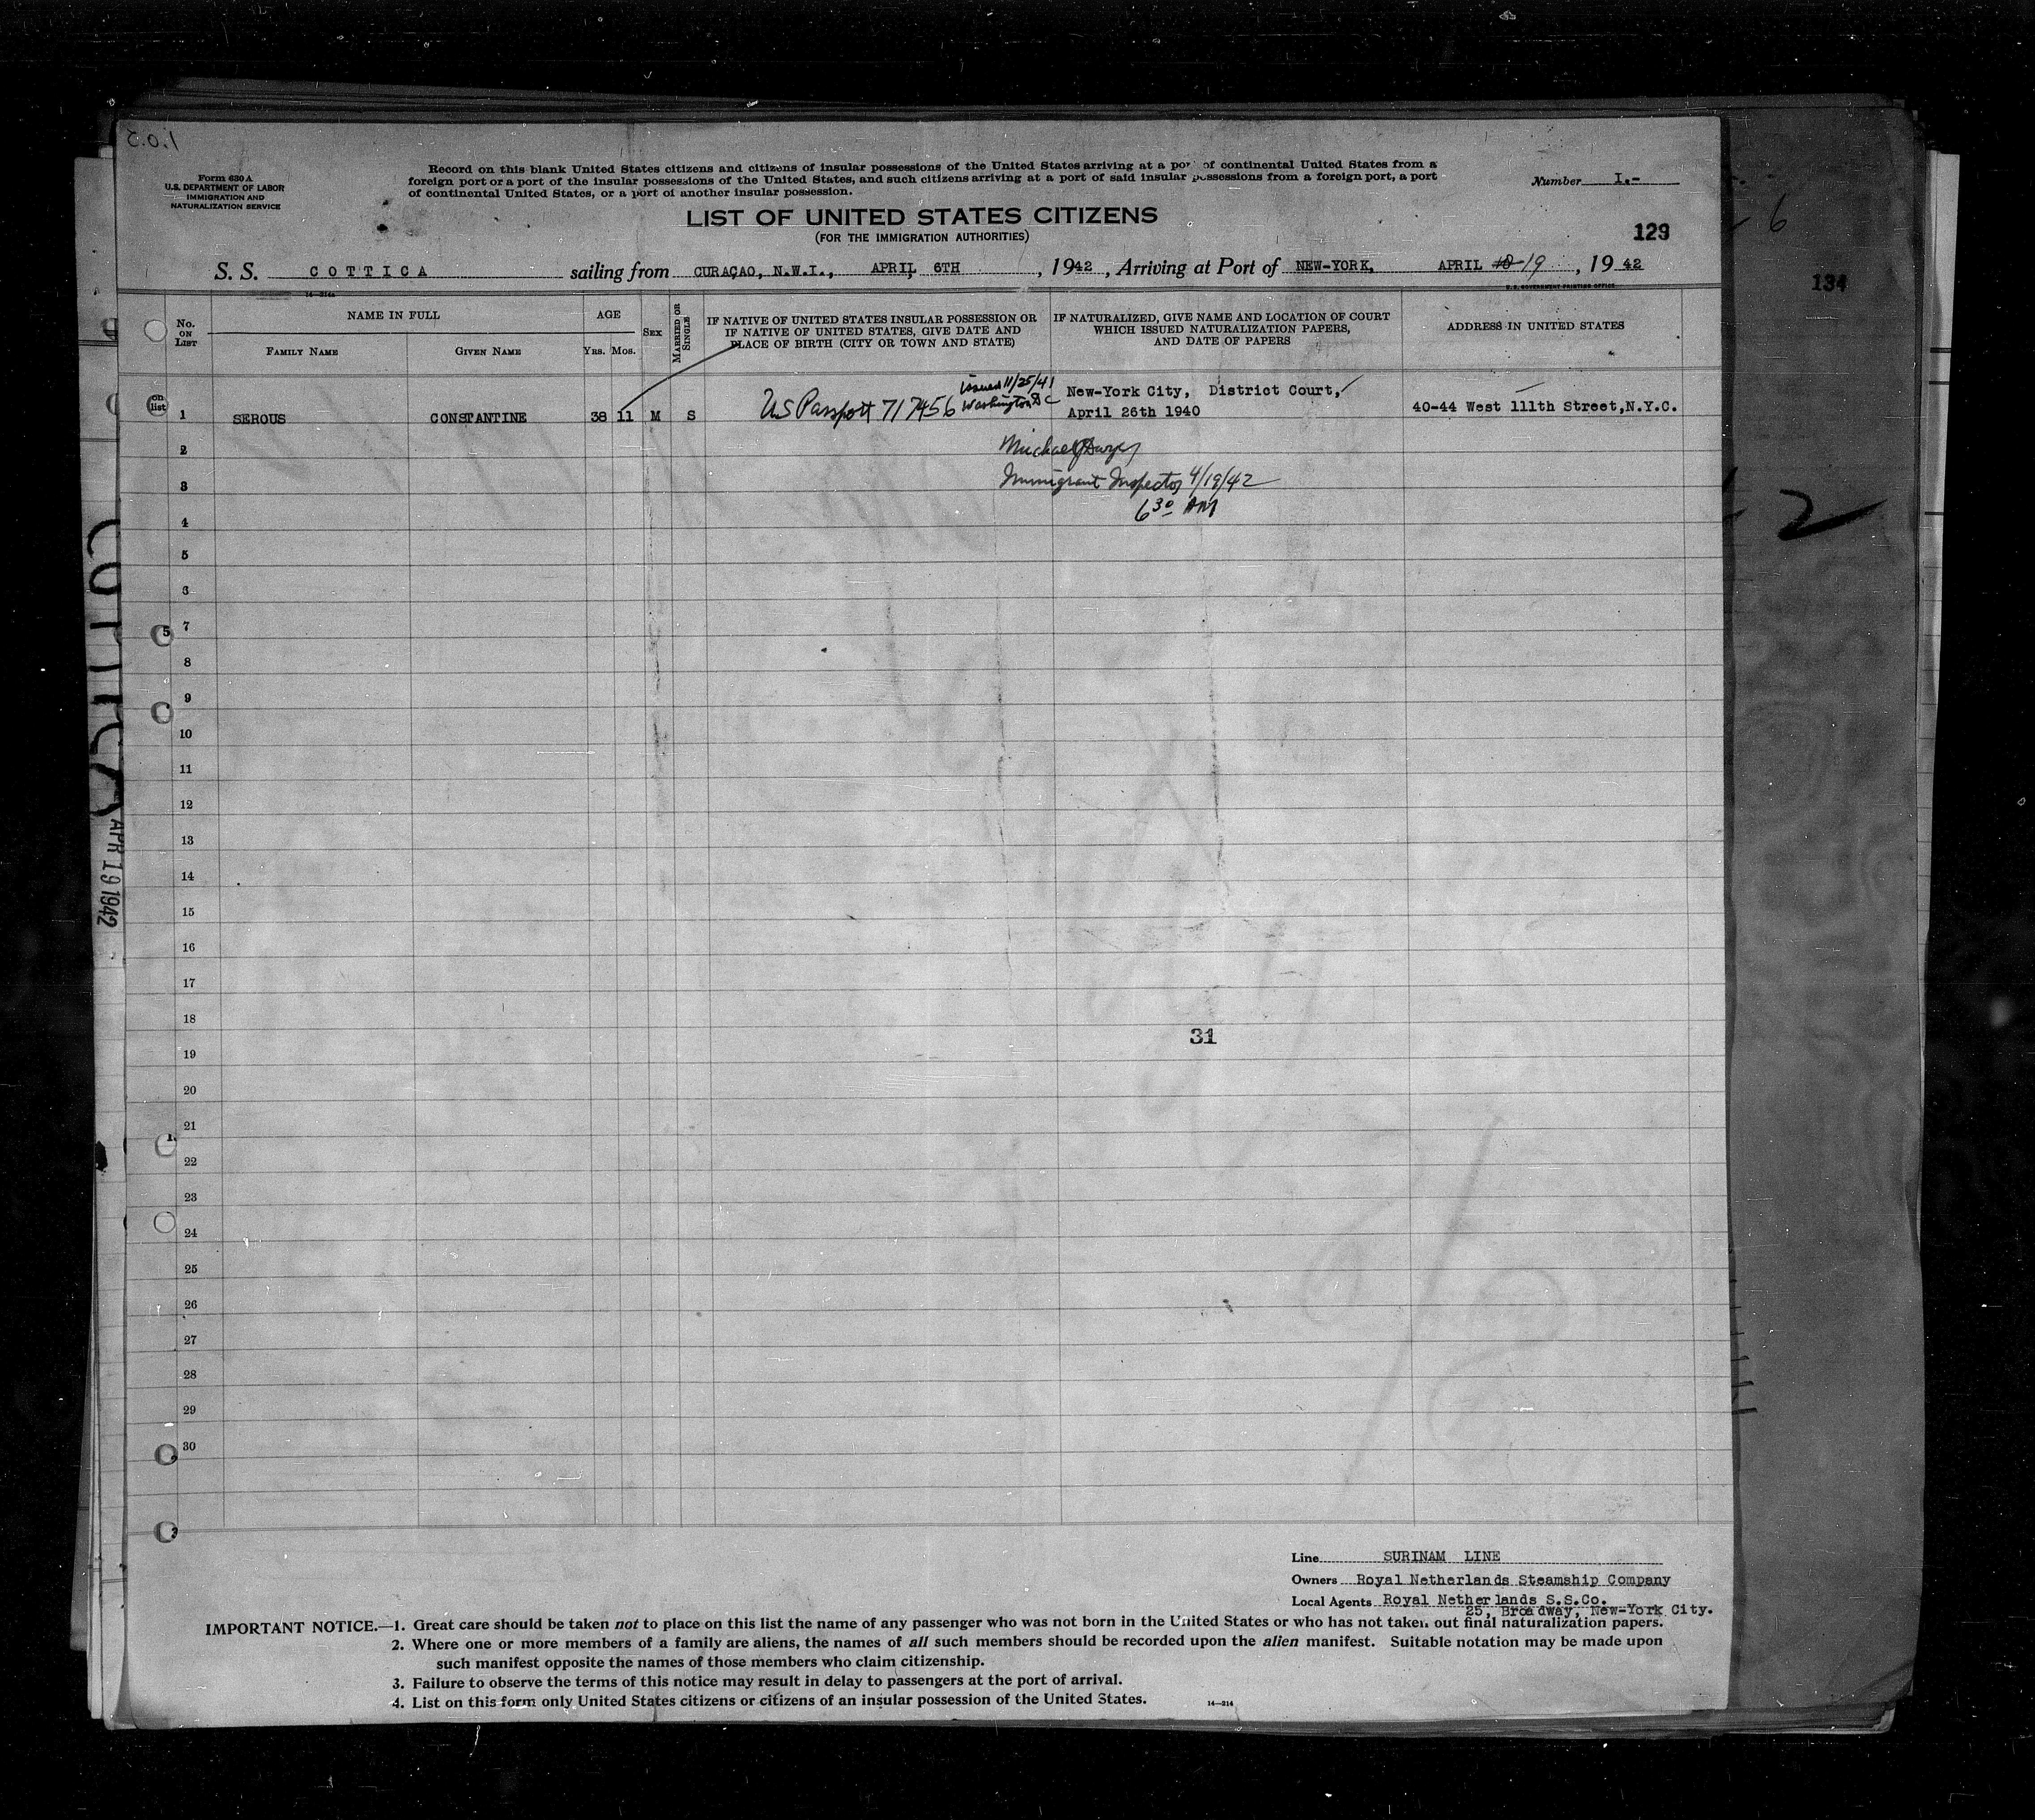 1.0.5
Form 630 A
U.S. DEPARTMENT OF LABOR
IMMIGRATION AND
NATURALIZATION SERVICE
Record on this blank United States citizens and citizens of insular possessions of the United States arriving at a port of continental United States from a
foreign port or a port of the insular possessions of the United States, and such citizens arriving at a port of said insular possessions from a foreign port, a port
of continental United States, or a port of another insular possession.
Number I.-
LIST OF UNITED STATES CITIZENS
(FOR THE IMMIGRATION AUTHORITIES)
129
6
134
S. S. COTTICA sailing from CURAÇAO, N.W.I., APRIL 6TH, 1942, Arriving at Port of NEW-YORK, APRIL 18 19, 1942
14—214a
U.S. GOVERNMENT PRINTING OFFICE
No. ON LIST
NAME IN FULL
FAMILY NAME
GIVEN NAME
AGE
YRS. MOS.
SEX
MARRIED OR SINGLE
IF NATIVE OF UNITED STATES INSULAR POSSESSION OR
IF NATIVE OF UNITED STATES, GIVE DATE AND
PLACE OF BIRTH (CITY OR TOWN AND STATE)
IF NATURALIZED, GIVE NAME AND LOCATION OF COURT
WHICH ISSUED NATURALIZATION PAPERS,
AND DATE OF PAPERS
ADDRESS IN UNITED STATES
on
list
1 SEROUS CONSTANTINE 38 11 M S
US Passport 717456
issued 11/25/41
Washington DC
New-York City, District Court,
April 26th 1940
40-44 West 111th Street,N.Y.C.
2
Michael Dwyer
3
Immigrant Inspector 4/19/42
6 30 AM
2
4
5
6
7
8
9
10
11
12
13
14
15
16
17
18
31
19
20
21
22
23
24
25
26
27
28
29
30
COTTICA
APR 19 1942
Line SURINAM LINE
Owners Royal Netherlands Steamship Company
Local Agents Royal Netherlands S.S.Co.
25, Broadway, New-York City.
IMPORTANT NOTICE.—1. Great care should be taken not to place on this list the name of any passenger who was not born in the United States or who has not taken out final naturalization papers.
2. Where one or more members of a family are aliens, the names of all such members should be recorded upon the alien manifest. Suitable notation may be made upon
such manifest opposite the names of those members who claim citizenship.
3. Failure to observe the terms of this notice may result in delay to passengers at the port of arrival.
4. List on this form only United States citizens or citizens of an insular possession of the United States.
14—214